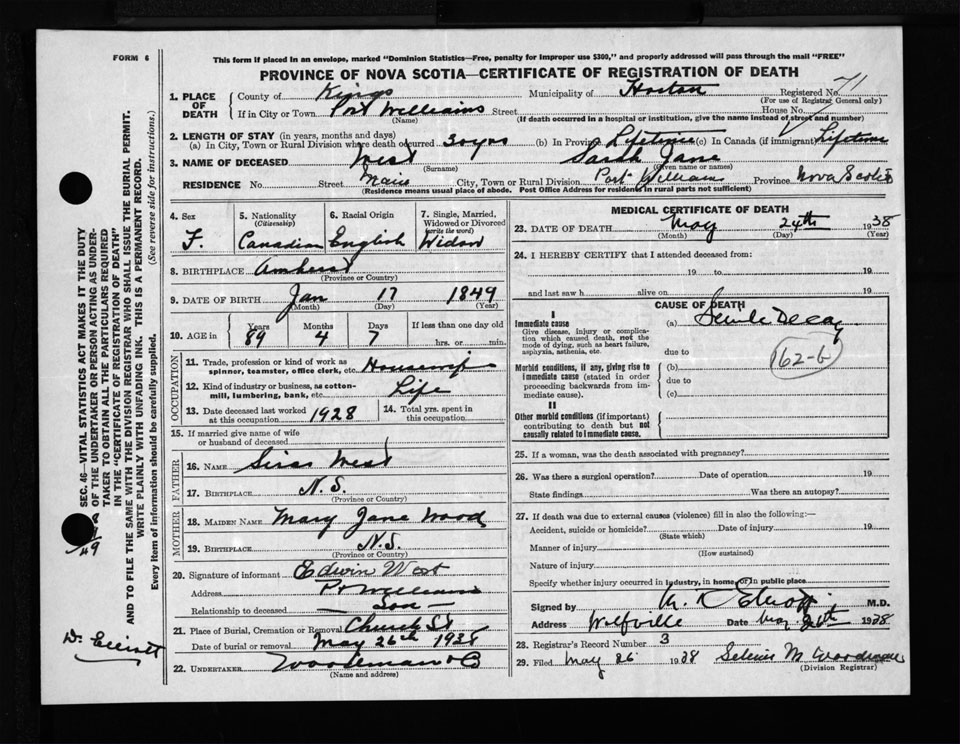 FORM 6
This form if placed in an envelope, marked "Dominion Statistics—Free, penalty for improper use $300," and properly addressed will pass through the mail "FREE"
PROVINCE OF NOVA SCOTIA—CERTIFICATE OF REGISTRATION OF DEATH
1. PLACE OF DEATH County of Kings Municipality of Horton Registered No. 71
(For use of Registrar General only)
If in City or Town Port Williams Street House No.
(Name) (If death occurred in a hospital or institution, give the name instead of street and number)
2. LENGTH OF STAY (in years, months and days)
(a) In City, Town or Rural Division where death occurred 30 yrs (b) In Province Lifetime (c) In Canada (if immigrant) Lifetime
3. NAME OF DECEASED West Sarah Jane
(Surname) (Given name or names)
RESIDENCE No. Street Main City, Town or Rural Division Port Williams Province Nova Scotia
(Residence means usual place of abode. Post Office Address for residents in rural parts not sufficient)
SEC. 46—VITAL STATISTICS ACT MAKES IT THE DUTY
OF THE UNDERTAKER OR PERSON ACTING AS UNDER-
TAKER TO OBTAIN ALL THE PARTICULARS REQUIRED
IN THE "CERTIFICATE OF REGISTRATION OF DEATH"
AND TO FILE THE SAME WITH THE DIVISION REGISTRAR WHO SHALL ISSUE THE BURIAL PERMIT.
WRITE PLAINLY WITH UNFADING INK. THIS IS A PERMANENT RECORD.
Every item of information should be carefully supplied. (See reverse side for instructions.)
4. Sex 5. Nationality 6. Racial Origin 7. Single, Married,
(Citizenship) Widowed or Divorced
(write the word)
F. Canadian English Widow
8. BIRTHPLACE Amherst
(Province or Country)
9. DATE OF BIRTH Jan 17 1849
(Month) (Day) (Year)
10. AGE in Years Months Days If less than one day old
89 4 7 hrs. or min.
OCCUPATION
11. Trade, profession or kind of work as
spinner, teamster, office clerk, etc. Housewife
12. Kind of industry or business, as cotton-
mill, lumbering, bank, etc. Life
13. Date deceased last worked at this occupation 1928 14. Total yrs. spent in this occupation
15. If married give name of wife
or husband of deceased
FATHER
16. NAME West
17. BIRTHPLACE N.S.
(Province or Country)
MOTHER
18. MAIDEN NAME Mary Jane Wood
19. BIRTHPLACE N.S.
(Province or Country)
20. Signature of informant Edwin West
Address Pt Williams
Relationship to deceased Son
21. Place of Burial, Cremation or Removal Church St
Date of burial or removal May 26th 1938
22. UNDERTAKER
(Name and address)
Dr. Elliott
MEDICAL CERTIFICATE OF DEATH
23. DATE OF DEATH May 24th 1938
(Month) (Day) (Year)
24. I HEREBY CERTIFY that I attended deceased from:
19 to 19
and last saw h alive on 19
CAUSE OF DEATH
I
Immediate cause (a) Senile Decay
Give disease, injury or complica-
tion which caused death, not the
mode of dying, such as heart failure,
asphyxia, asthenia, etc.
due to
162-b
Morbid conditions, if any, giving rise to (b)
immediate cause (stated in order due to
proceeding backwards from im- (c)
mediate cause).
II
Other morbid conditions (if important)
contributing to death but not
causally related to immediate cause.
25. If a woman, was the death associated with pregnancy?
26. Was there a surgical operation? Date of operation 19
State findings Was there an autopsy?
27. If death was due to external causes (violence) fill in also the following:—
Accident, suicide or homicide? Date of injury 19
(State which)
Manner of injury
(How sustained)
Nature of injury
Specify whether injury occurred in industry, in home or in public place
Signed by Elliott M.D.
Address Wolfville Date May 26th 1938
28. Registrar's Record Number 3
29. Filed May 26 1938 M Woodman
(Division Registrar)